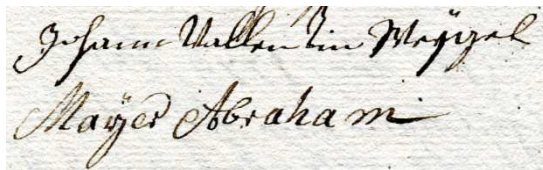 Johann Vallentin Weÿgel
Maÿer Abraham